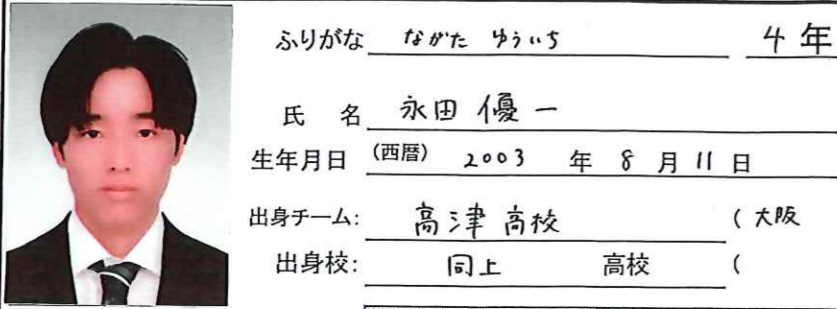 ふりがな ながた ゆういち 4年
氏 名 永田 優一
生年月日 (西暦) 2003 年 8 月 11 日
出身チーム: 高津高校 (大阪
出身校: 同上 高校 (